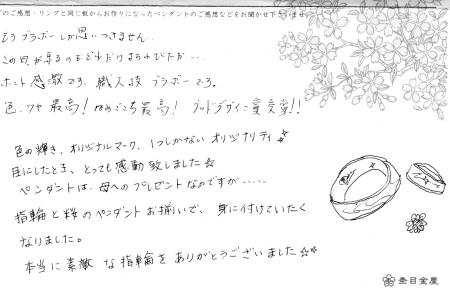 のご感想・リングと同じ板からお作りになったペンダントのご感想などをお聞かせ下さいませ
もうブラボーしか思いつきません
この日が来るのをどれだけまちわびたか…
ホント感激です。職人技ブラボーです。
色、ツヤ最高！はめごこち最高！グッドデザイン賞受賞!!
色の輝き、オリジナルマーク、1つしかないオリジナリティ
目にしたとき、とっても感動致しました☆
ペンダントは、母へのプレゼントなのですが……
指輪と桜のペンダントお揃いで、身に付けていたく
なりました。
本当に素敵な指輪をありがとうございました☆
杢目金屋